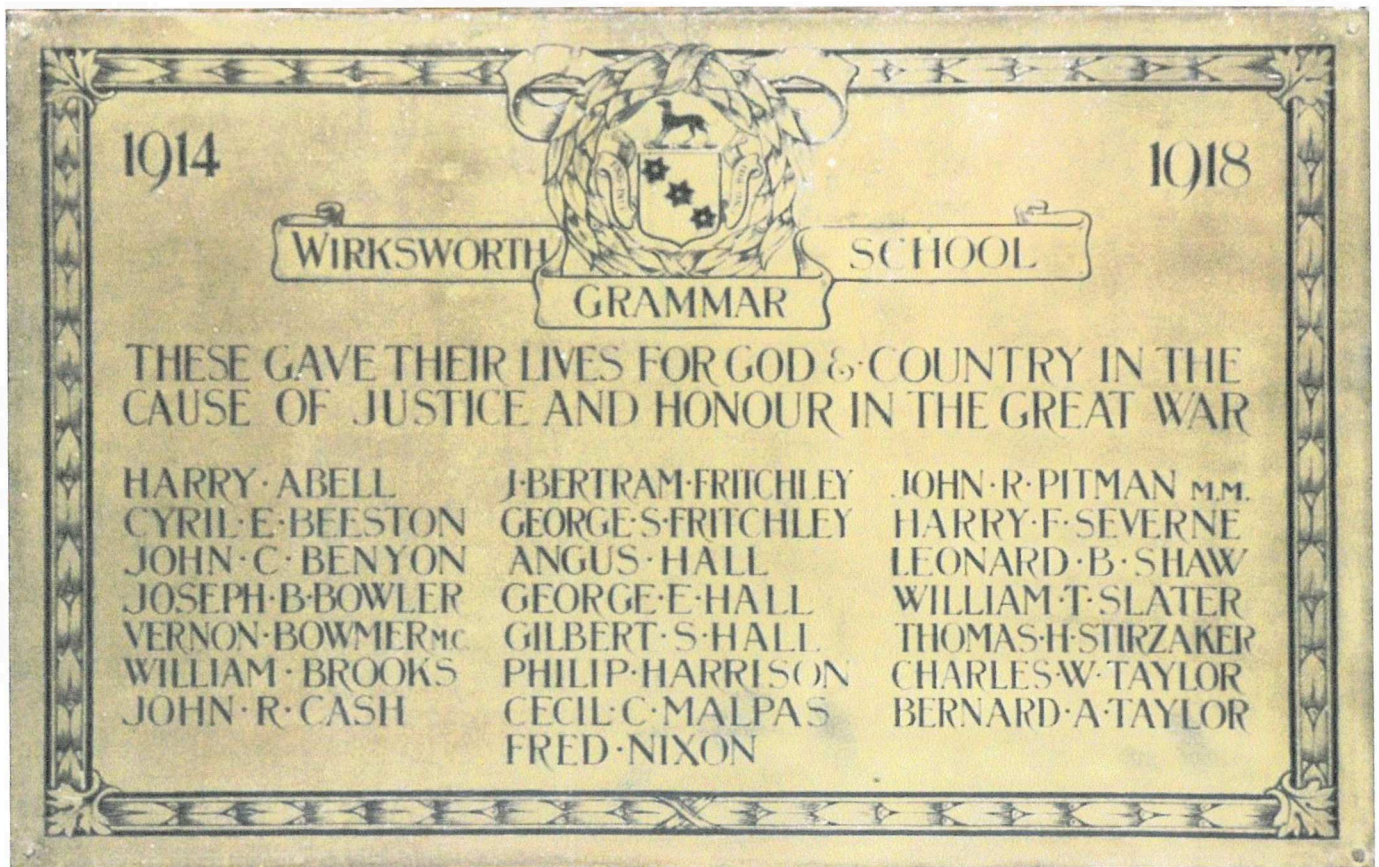 1914
1918
WIRKSWORTH
SCHOOL
GRAMMAR
THESE GAVE THEIR LIVES FOR GOD & COUNTRY IN THE
CAUSE OF JUSTICE AND HONOUR IN THE GREAT WAR
HARRY·ABELL
CYRIL·E·BEESTON
JOHN·C·BENYON
JOSEPH·B·BOWLER
VERNON·BOWMER M.C.
WILLIAM·BROOKS
JOHN·R·CASH
J·BERTRAM·FRITCHLEY
GEORGE·S·FRITCHLEY
ANGUS·HALL
GEORGE·E·HALL
GILBERT·S·HALL
PHILIP·HARRISON
CECIL·C·MALPAS
FRED·NIXON
JOHN·R·PITMAN M.M.
HARRY·F·SEVERNE
LEONARD·B·SHAW
WILLIAM·T·SLATER
THOMAS·H·STIRZAKER
CHARLES·W·TAYLOR
BERNARD·A·TAYLOR